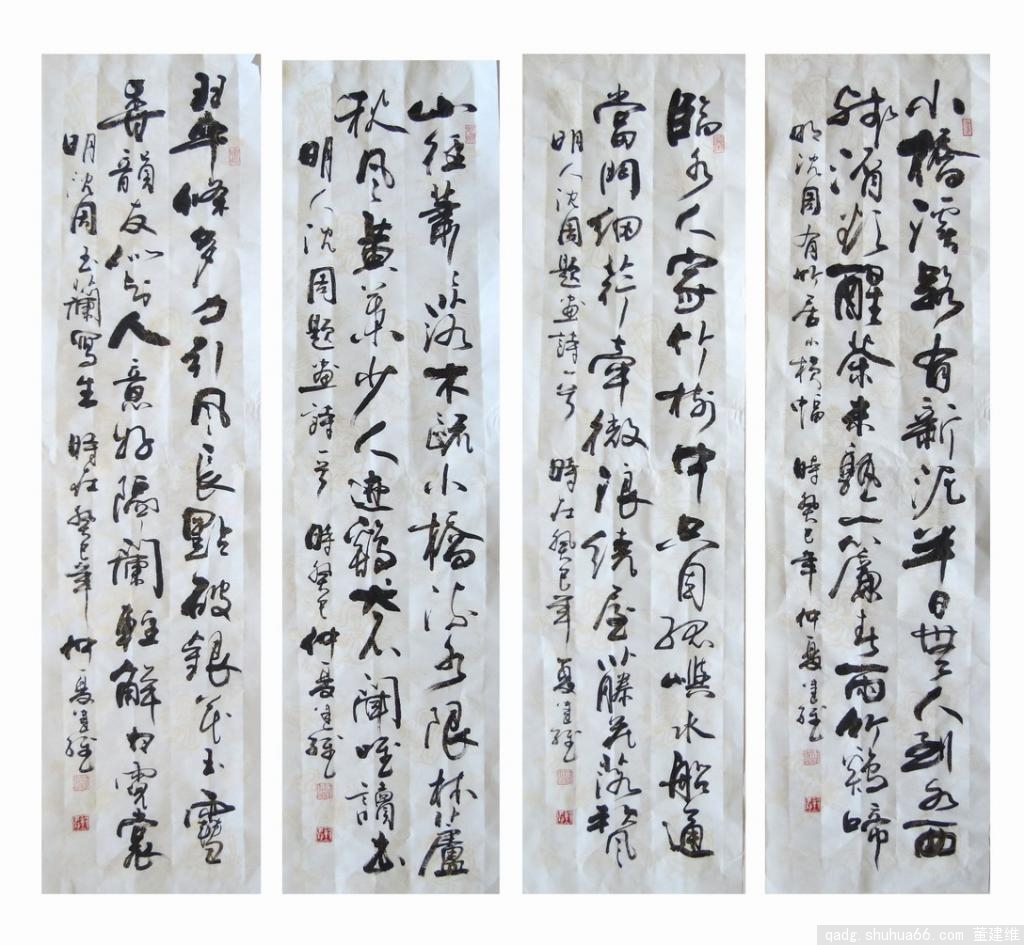 小橋溪路有新泥半日無人到水西
殘酒欲醒茶未熟一簾春雨竹鷄啼
明沈周有竹居小橫幅 時癸巳年 仲夏建維
臨水人家竹樹中只因孤嶼水船通
當門細荇牽微浪繞屋藤花落風
明人沈周題畫詩一首 時在癸巳年 夏建維
山徑蕭蕭落木疏小橋流水限林廬
秋風黃葉少人迹鷄犬不聞唯讀書
明人沈周題畫詩一首 時癸巳仲夏建維
翠條多力引風長點破銀花玉雪
香韻友似知人意好隔闌輕解白霓裳
明沈周玉蘭寫生 時在癸巳年 仲夏建維
qadg.shuhua66.com 董建维